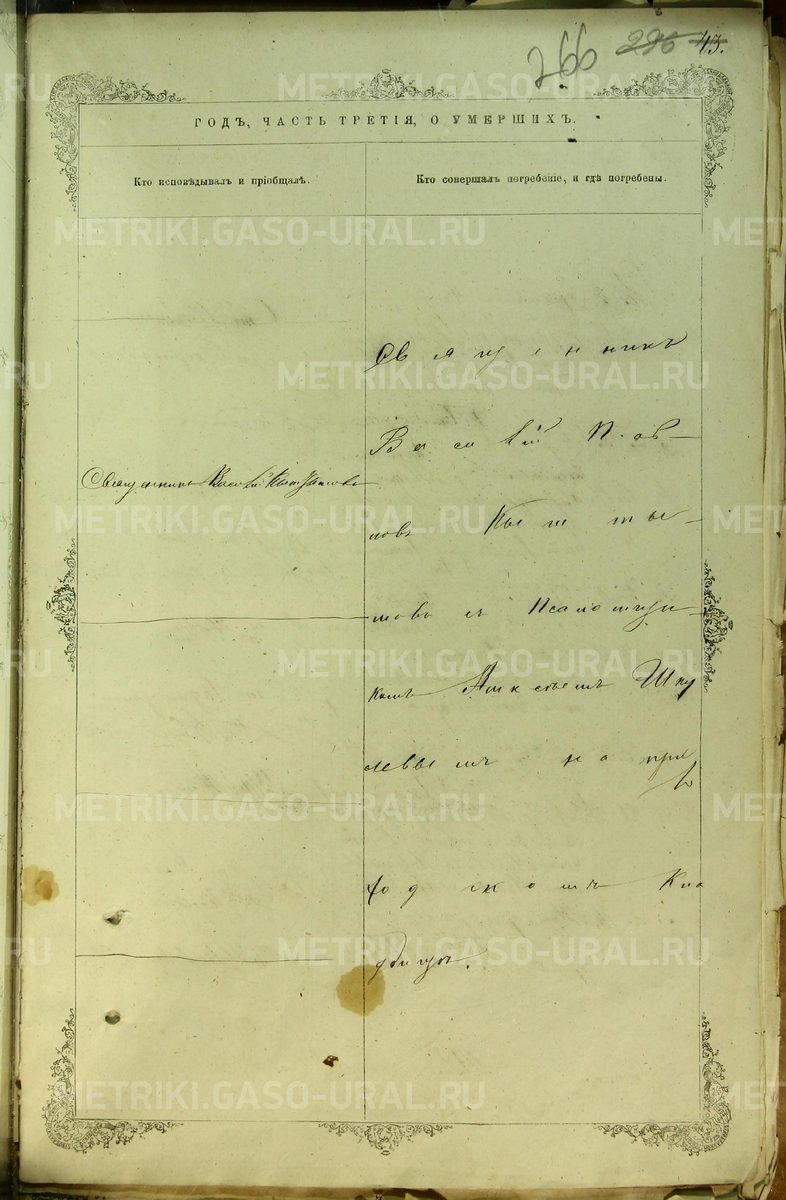 266 296 43.
ГОДЪ, ЧАСТЬ ТРЕТІЯ, О УМЕРШИХЪ.
Кто исповѣдывалъ и пріобщалъ.
Кто совершалъ погребеніе, и гдѣ погребены.
Священникъ
Василій Пав-
Священникъ Василій
ловъ Кышты-
мовъ съ Псаломщи-
комъ Алексѣемъ
на при
ходскомъ Кла
дбищѣ.
METRIKI.GASO-URAL.RU